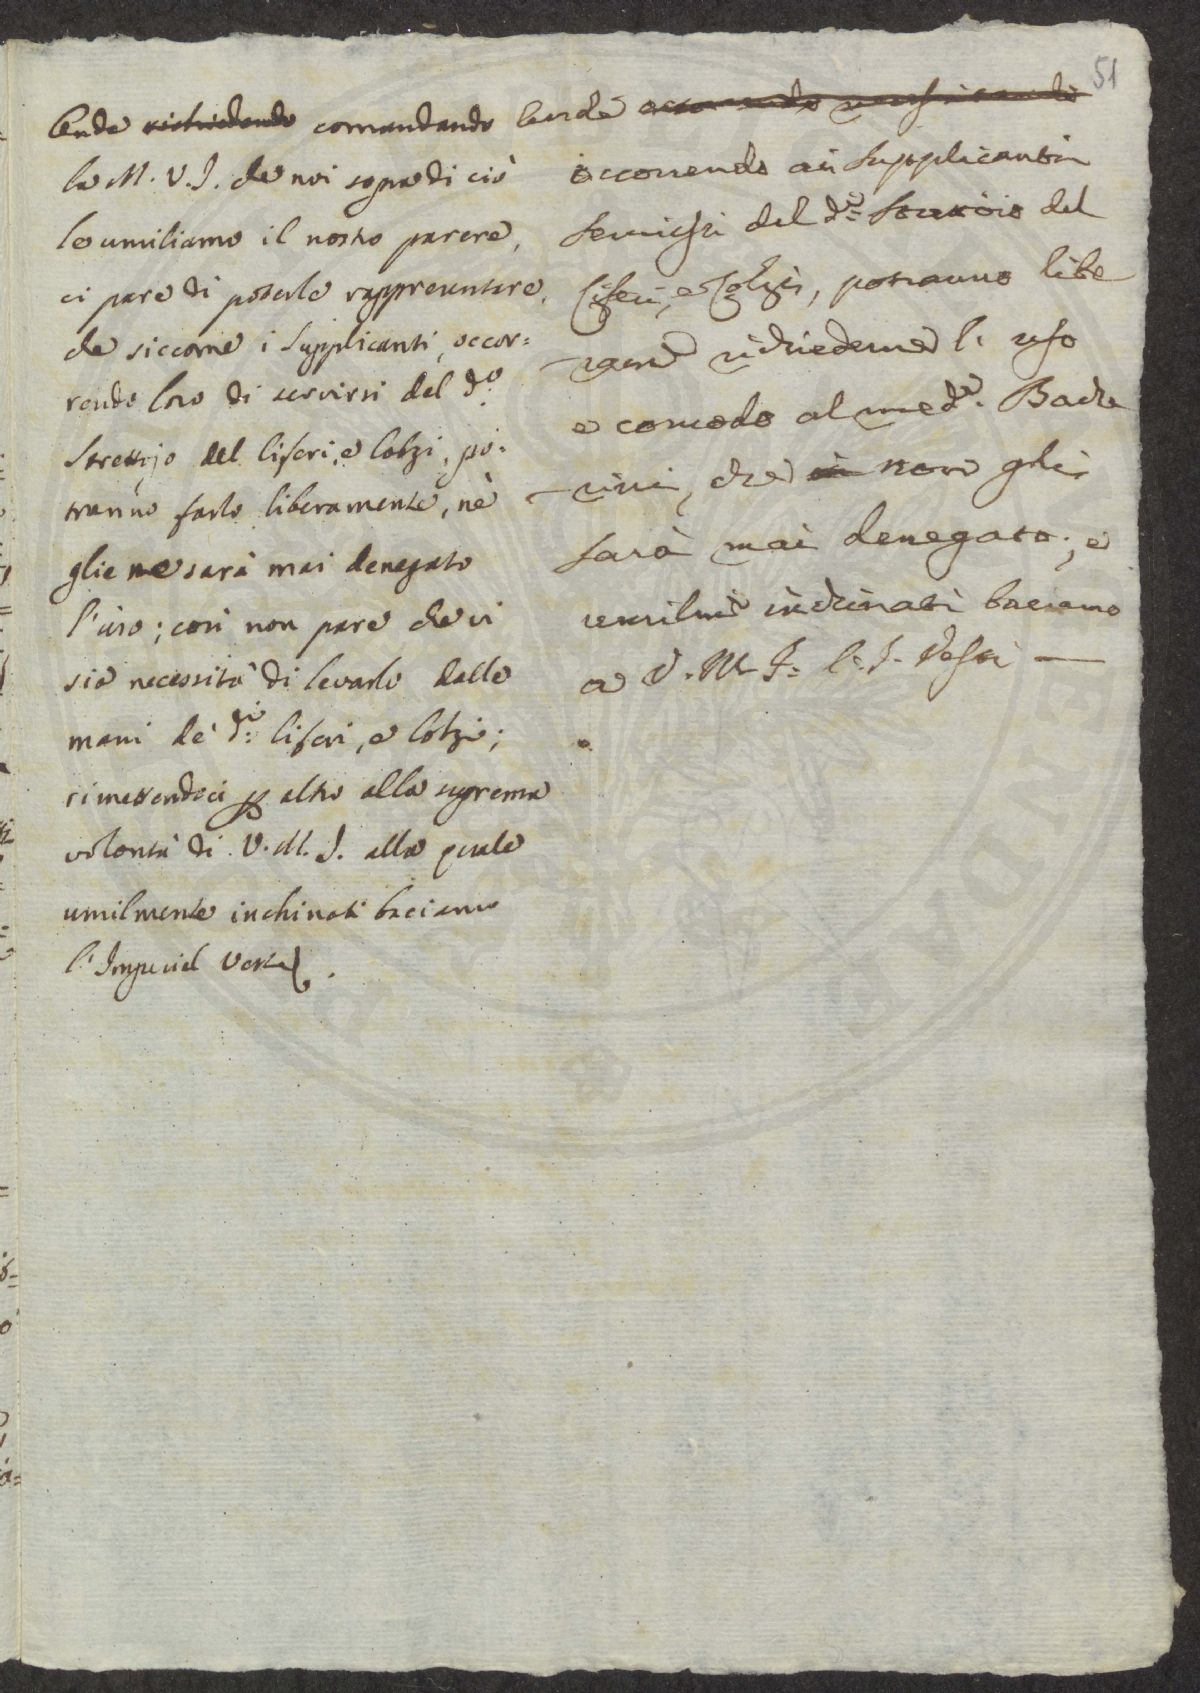 51
Onde richiedendo comandando
la M. V. I. che noi sopra di ciò
le umiliamo il nostro parere,
ci pare di poterle rappresentare,
che siccome i Supplicanti, occor=
rendo loro di servirsi del do.
Strettojo del Ciferi, e Cotzi, po-
tranno farlo liberamente, nè
glie ne sarà mai denegato
l'uso; così non pare che vi
sia necessità di levarlo dalle
mani de' di: Ciferi, e Cotzi;
rimettendoci per altro alla suprema
volontà di V. M. I. alla quale
umilmente inchinati baciamo
l'Imperial Veste.
Onde
occorrendo ai Supplicanti
servirsi del do: del
Ciferi, e Cotzi, potranno libe
ramte richiederne l' uso
e comodo al medo. Bache
rini, che non gli
sarà mai denegato; e
umilmte inchinati baciamo
a V. M. I. l. I. Veste